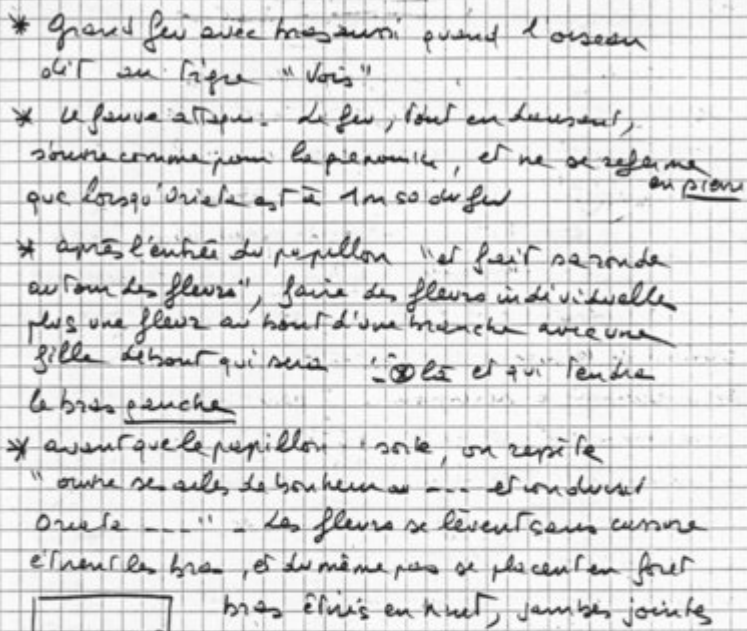 * Grand feu avec bras aussi quand l'oiseau
dit au tigre "Vois"
* Le fauve attaque. Le feu, tout en dansant,
s'ouvre comme pour la pirouette, et ne se referme
que lorsqu'Oriete est à 1m50 du feu en pierre
* après l'entrée du papillon "et fait sa ronde
autour des fleurs", faire des fleurs individuelle
plus une fleur au bout d'une branche avec une
fille debout qui sera là et qui tendra
le bras gauche
* avant que le papillon sorte, on repète
"ouvre ses ailes de bonheur au --- et conduisit
Oriete ---" - Les fleurs se lèvent sans cassure
étirent les bras, et du même pas se placent en foret
bras étirés en haut, jambes jointes